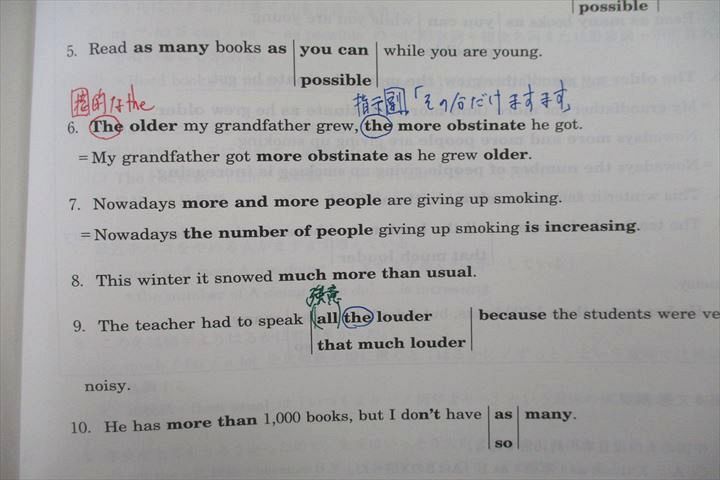 possible
5. Read as many books as you can while you are young.
possible
的なthe 指示副「その分だけますます」
6. The older my grandfather grew, the more obstinate he got.
= My grandfather got more obstinate as he grew older.
7. Nowadays more and more people are giving up smoking.
= Nowadays the number of people giving up smoking is increasing.
8. This winter it snowed much more than usual.
強意
9. The teacher had to speak all the louder because the students were ve
that much louder
noisy.
10. He has more than 1,000 books, but I don't have as many.
so